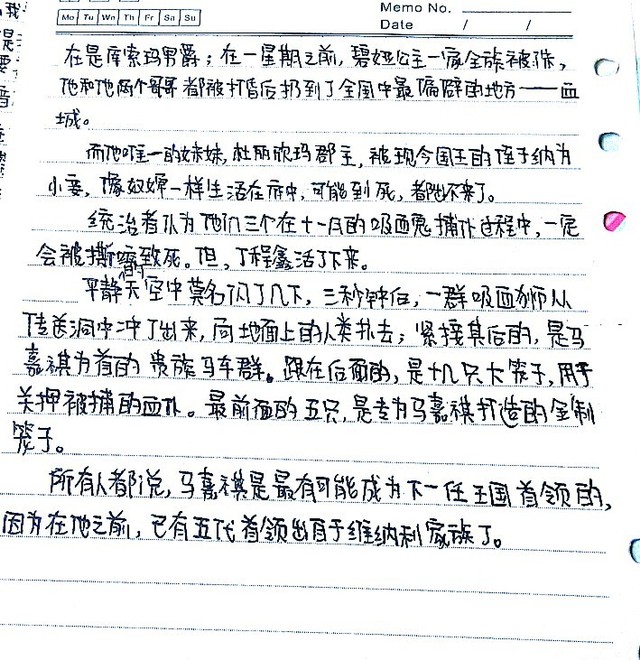 Memo No.
Mo Tu We Th Fr Sa Su
Date / /
在是库索玛男爵；在一星期之前，碧娅公主一家全族被诛，
他和他两个哥哥都被打昏后扔到了全国中最隔僻的地方——血
城。
而他唯一的妹妹，杜丽欣玛郡主，被现今国王的侄子纳为
小妾，像奴婢一样生活在府中，可能到死，都出不来了。
统治者认为他们三个在十一月的吸血鬼捕仆过程中，一定
会被撕磨致死。但，丁程鑫活了下来。
平静的天空中莫名闪了几下，三秒钟后，一群吸血狮从
传送洞中冲了出来，向地面上的人类扑去；紧接其后的，是马
嘉祺为首的贵族马车群。跟在后面的，是十几只大笼子，用于
关押被捕的血仆。最前面的五只，是专为马嘉祺打造的金制
笼子。
所有人都说，马嘉祺是最有可能成为下一任王国首领的，
因为在他之前，已有五代首领出自于维纳利家族了。